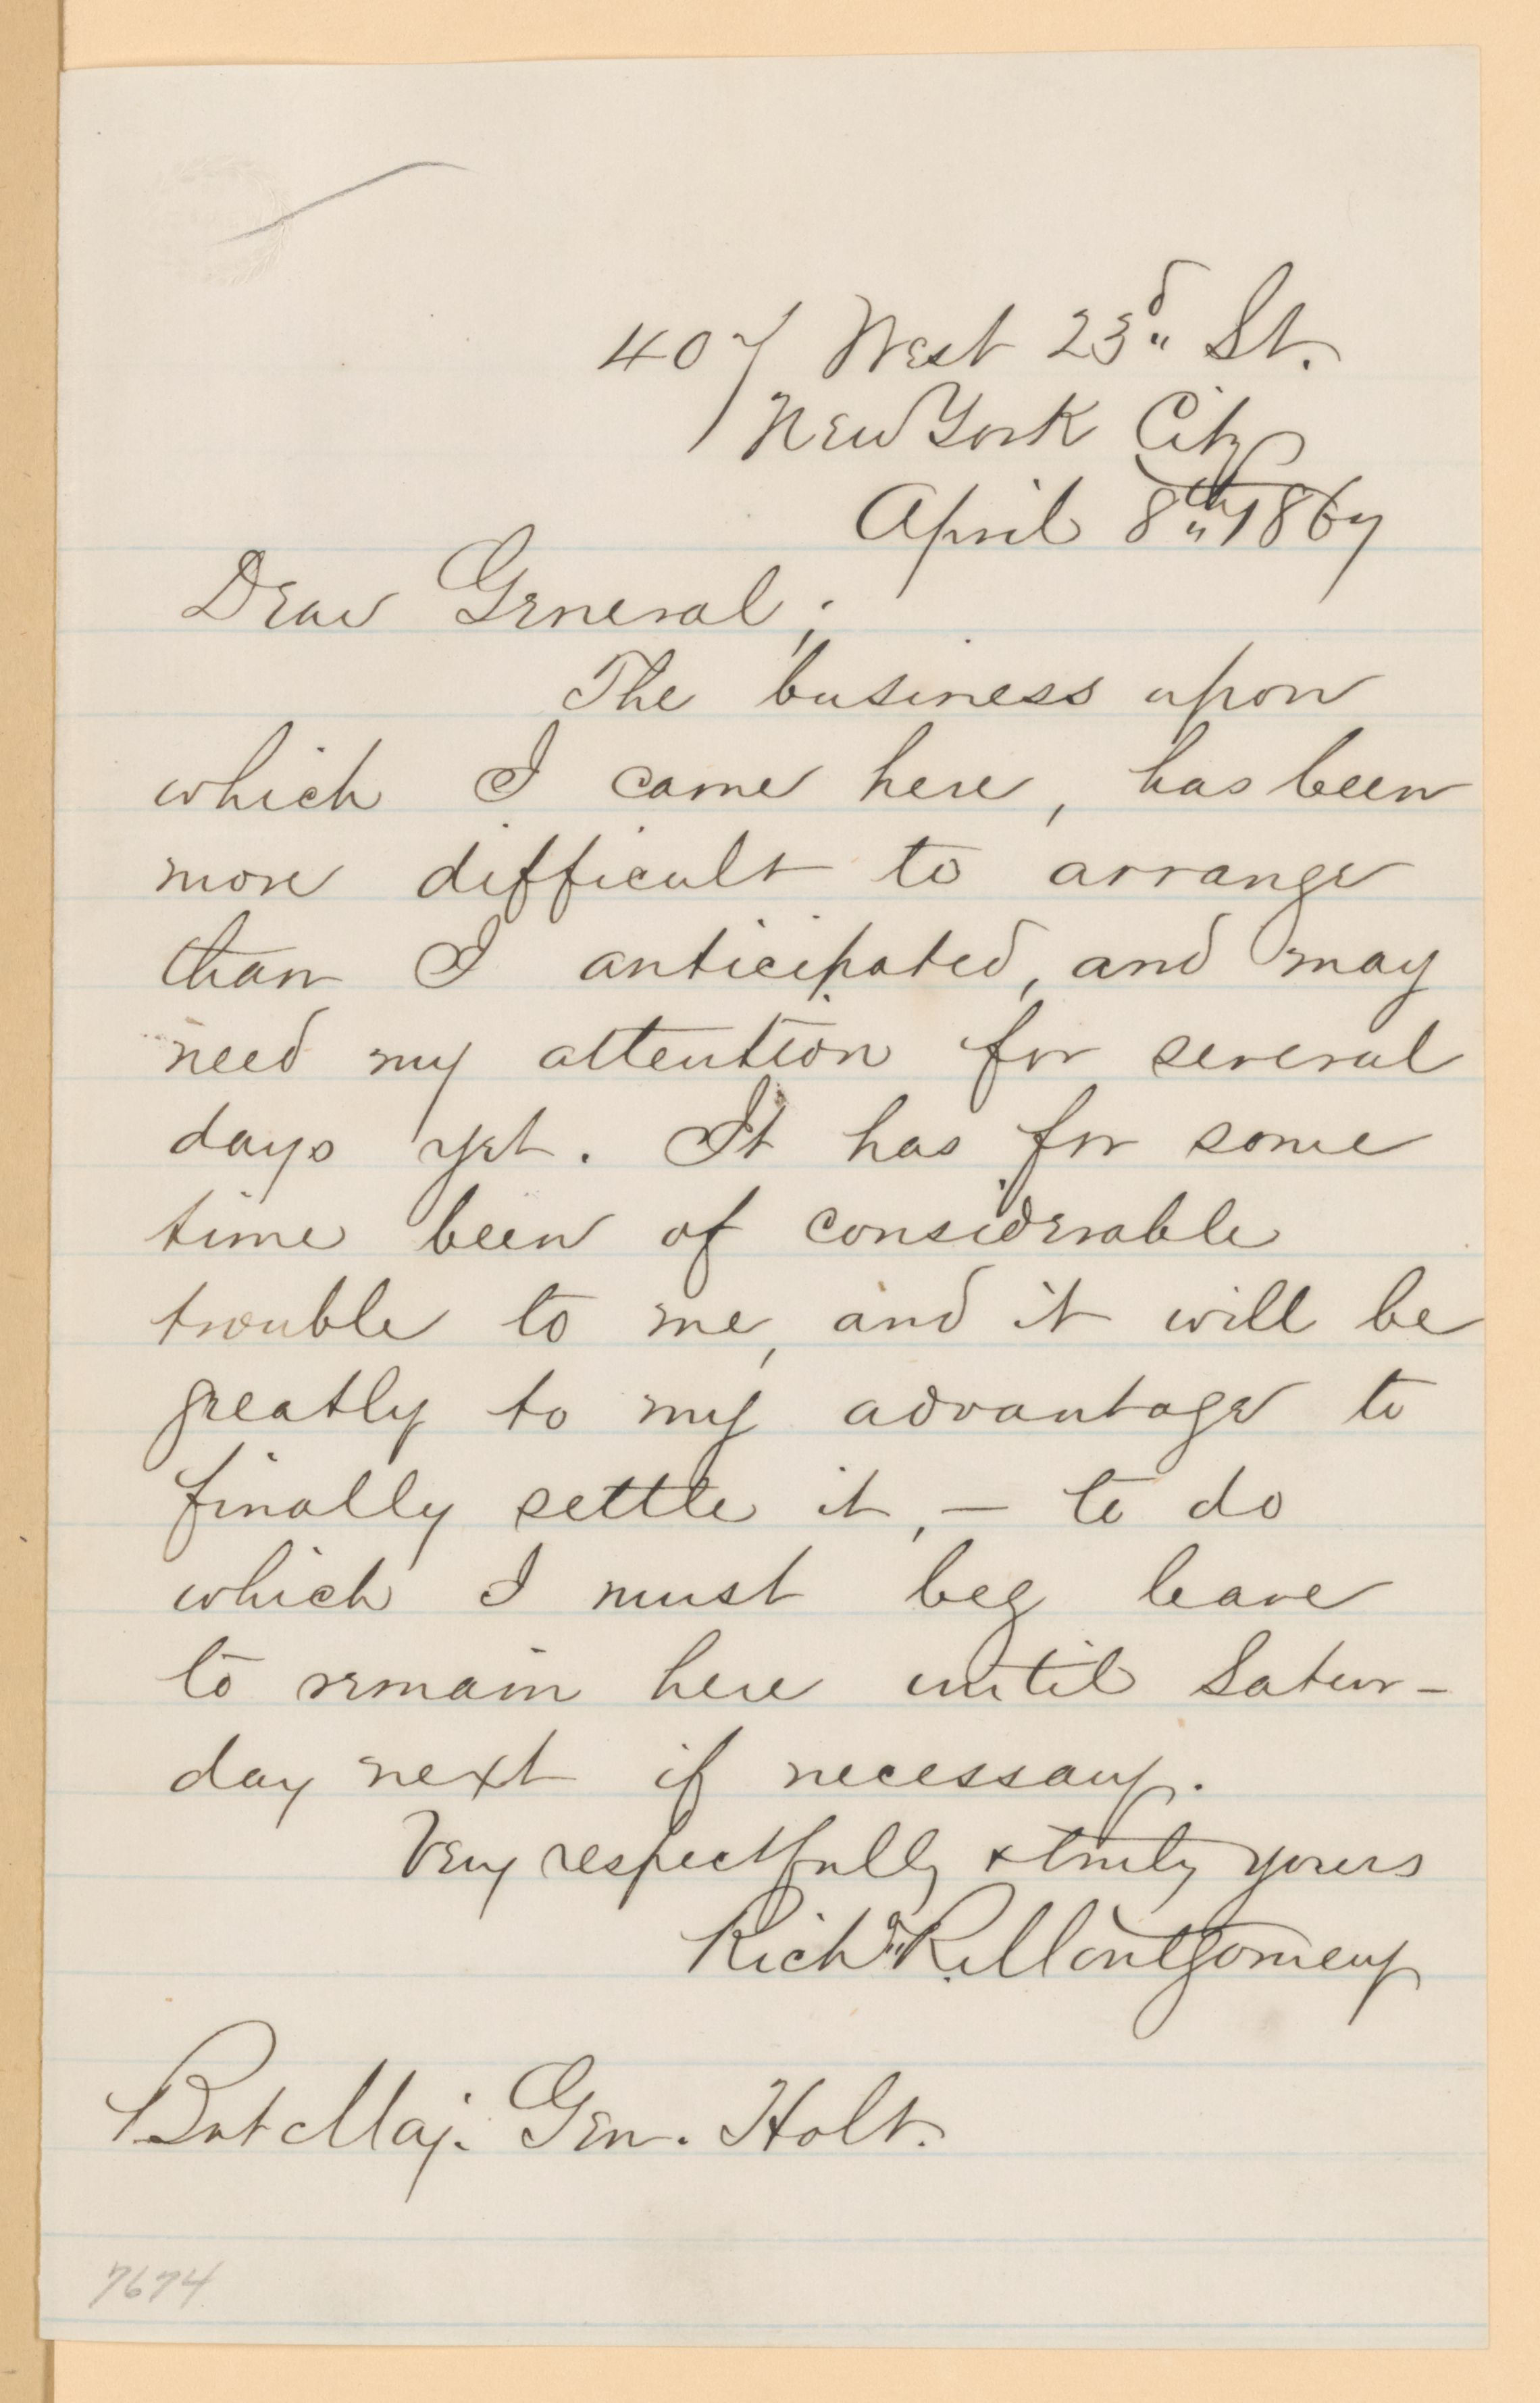 407 West 23d" St.
New York City
April 8th" 1867
Dear General;
The business upon
which I came here, has been
more difficult to arrange
than I anticipated, and may
need my attention for several
days yet. It has for some
time been of considerable
trouble to me, and it will be
greatly to my advantage to
finally settle it, — to do
which I must beg leave
to remain here until Satur-
day next if necessary.
Very respectfully & truly yours
Richd" R. Montgomery
Bvt Maj. Gen. Holt.
7674